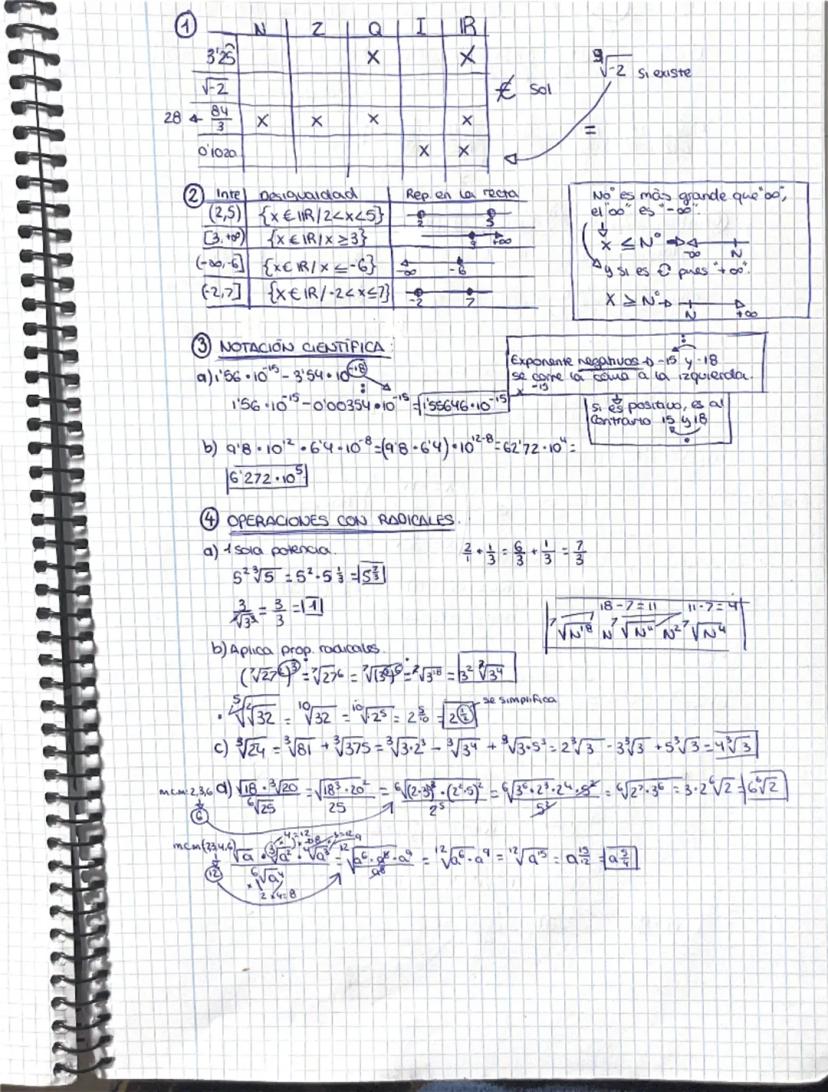 ① N Z Q I IR
3'25 X X
√-2 ∄ Sol
28 ← 84/3 X X X X
0'1020... X X
⁹√-2 Si existe
=
② Inte Desigualdad Rep. en la recta
(2,5) {x ∈ IR / 2<x<5} 2 5
[3,+∞) {x ∈ IR / x ≥ 3} 3 +∞
(-∞,-6] {x ∈ IR / x ≤ -6} -∞ -6
(-2,7] {x ∈ IR / -2<x≤7} -2 7
Nº es más grande que "∞",
el "∞" es "-∞".
x ≤ Nº → -∞ N
y si es pues "+∞".
x ≥ Nº → N +∞
③ NOTACIÓN CIENTÍFICA:
a) 1'56 · 10⁻¹⁵ - 3'54 · 10⁻¹⁸
1'56 · 10⁻¹⁵ - 0'00354 · 10⁻¹⁵ = 1'55646 · 10⁻¹⁵
Exponente negativos → -15 y -18
se corre la coma a la izquierda.
x⁻¹⁵
si es positivo, es al
contrario 15 y 18
b) 9'8 · 10¹² · 6'4 · 10⁻⁸ = (9'8 · 6'4) · 10¹²⁻⁸ = 62'72 · 10⁴ =
6'272 · 10⁵
④ OPERACIONES CON RADICALES.
a) 1 sola potencia.
2/1 + 1/3 = 6/3 + 1/3 = 7/3
5² ³√5 = 5² · 5^1/3 = 5^7/3
3/√3² = 3/3 = 1
18-7=11 11-7=4
⁷√N¹⁸ N ⁷√N¹¹ N² ⁷√N⁴
b) Aplica prop. radicales.
(⁷√27²)³ = ⁷√27⁶ = ⁷√(3³)⁶ = ⁷√3¹⁸ = 3² ⁷√3⁴
· ⁵√√32 = ¹⁰√32 = ¹⁰√2⁵ = 2^5/10 = 2^1/2 se simplifica
c) ³√24 = ³√81 + ³√375 = ³√3·2³ - ³√3⁴ + ³√3·5³ = 2 ³√3 - 3 ³√3 + 5 ³√3 = 4 ³√3
mcm: 2,3,6 d) √18 · ³√20 / ⁶√25 = √18³ · 20² / 25 = ⁶√(2·3²)³ · (2²·5)² / 2⁵ = ⁶√3⁶ · 2³ · 2⁴ · 5² / 5² = ⁶√2⁷ · 3⁶ = 3 · 2 ⁶√2 = 6 ⁶√2
6
mcm(2,3,4,6) √a · ³√a² · ⁴√a³ / ⁶√a⁴ = ¹²√a⁶ · a⁸ · a⁹ / a⁸ = ¹²√a⁶ · a⁹ = ¹²√a¹⁵ = a^15/12 = a^5/4
12
2 x 4 = 8